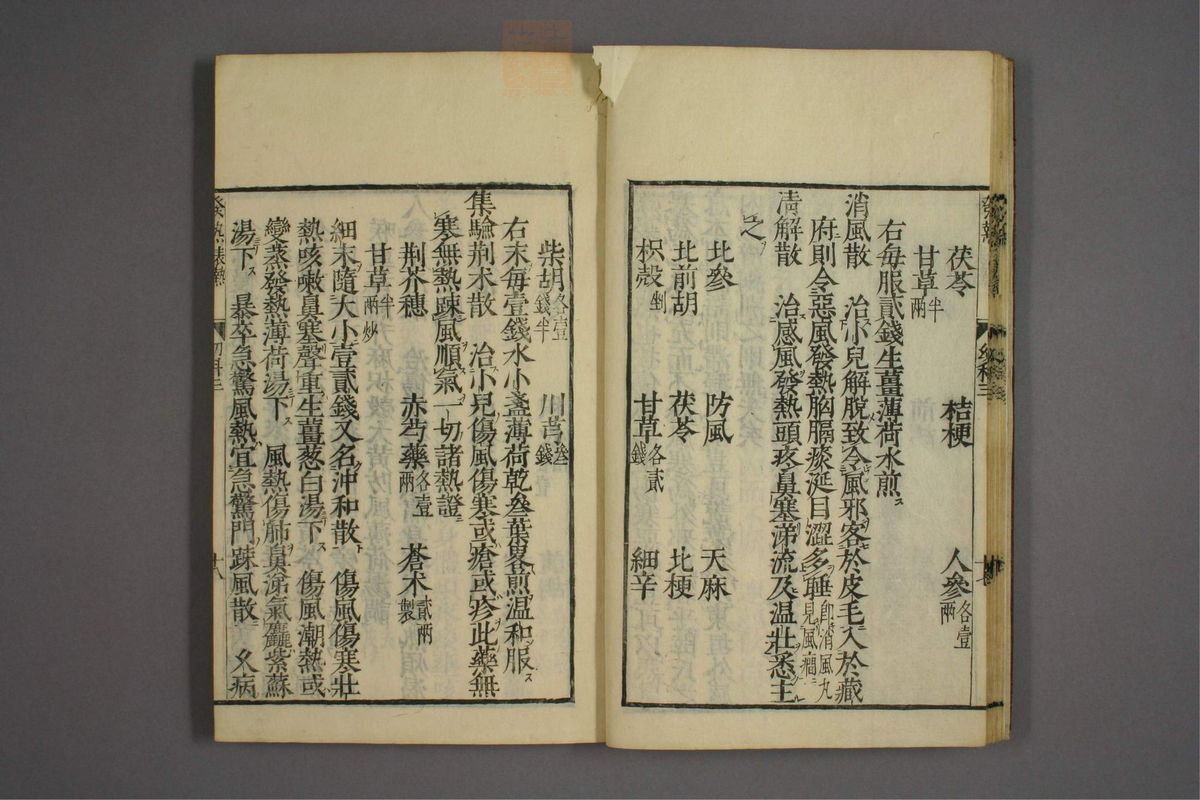 茯苓 桔梗 人參各壹兩
甘草半兩
右每服貳錢生薑薄荷水煎ス
消風散 治小兒解脫致令風邪客於皮毛入於藏
府則令惡風發熱胸膈痰涎目澀多睡卽消風丸見風癎ニ
清解散 治感風發熱頭疼鼻塞涕流及温壯悉主
之
北參 防風 天麻
北前胡 茯苓 北梗
枳殼剉 甘草各貳錢 細辛
柴胡各壹錢半 川芎叁錢
右末每壹錢水小盞薄荷乾叁葉畧煎温和服ス
集驗荆朮散 治小兒傷風傷寒或瘡或疹此藥無
寒無熱疎風順氣一切諸熱證
荆芥穗 赤芍藥各壹兩 蒼朮貳兩製
甘草兩炒
細末隨大小壹貳錢又名沖和散 傷風傷寒壯
熱咳嗽鼻塞聲重生薑葱白湯下ス 傷風潮熱或
變蒸發熱薄荷湯下ス 風熱傷肺鼻涕氣麤紫蘇
湯下ス 暴卒急驚風熱宜急驚門疎風散ニ 久病